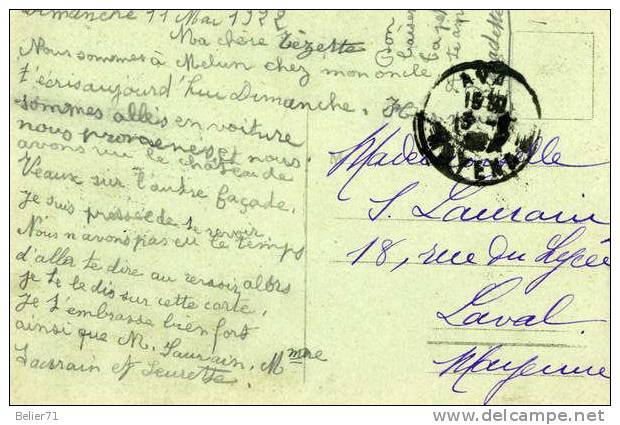 Dimanche 11 Mai 1922
Ma chère Zézette
Nous sommes à Melun chez mon oncle
t'écris aujourd'hui Dimanche.
sommes allés en voiture
nous promener et nous
avons vu le château de
Veaux sur l'autre façade.
Je suis pressée de te revoir
Nous n'avons pas eu le temps
d'aller te dire au revoir alors
je te le dis sur cette carte.
Je t'embrasse bien fort
ainsi que M. Laurain, Mme
Laurain et
LAVAL
MAYENNE
Mademoiselle
S. Laurain
18, rue du Lycée
Laval
Mayenne
Belier71